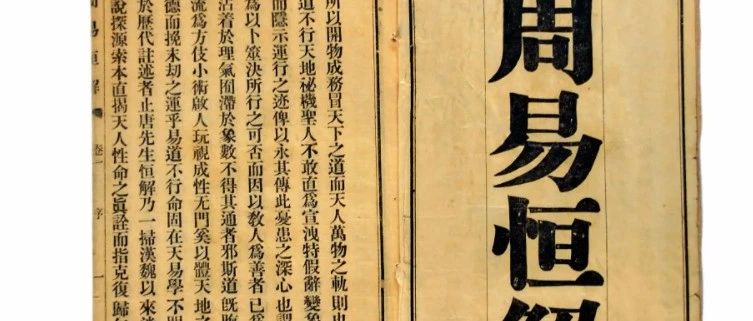 周易恒解
所以開物成務冒天下之道而天人萬物之軌則也
道不行天地祕機聖人不敢直爲宣洩特假辭變象
而隱示運行之迹俾以永其傳此憂患之深心也
爲以卜筮決所行之可否而因以敎人爲善者已
沾着於理氣囿滯於象數不得其通者邪斯道旣
流爲方伎小術啟人玩視成性无門奚以體天地之
德而挽末刧之運乎易道不行命固在天易學不明
於歷代註述者止唐先生恒解乃一掃漢魏以來
說探源索本直揭天人性命之眞詮而指克復歸
周易恒解 卷一 序 一